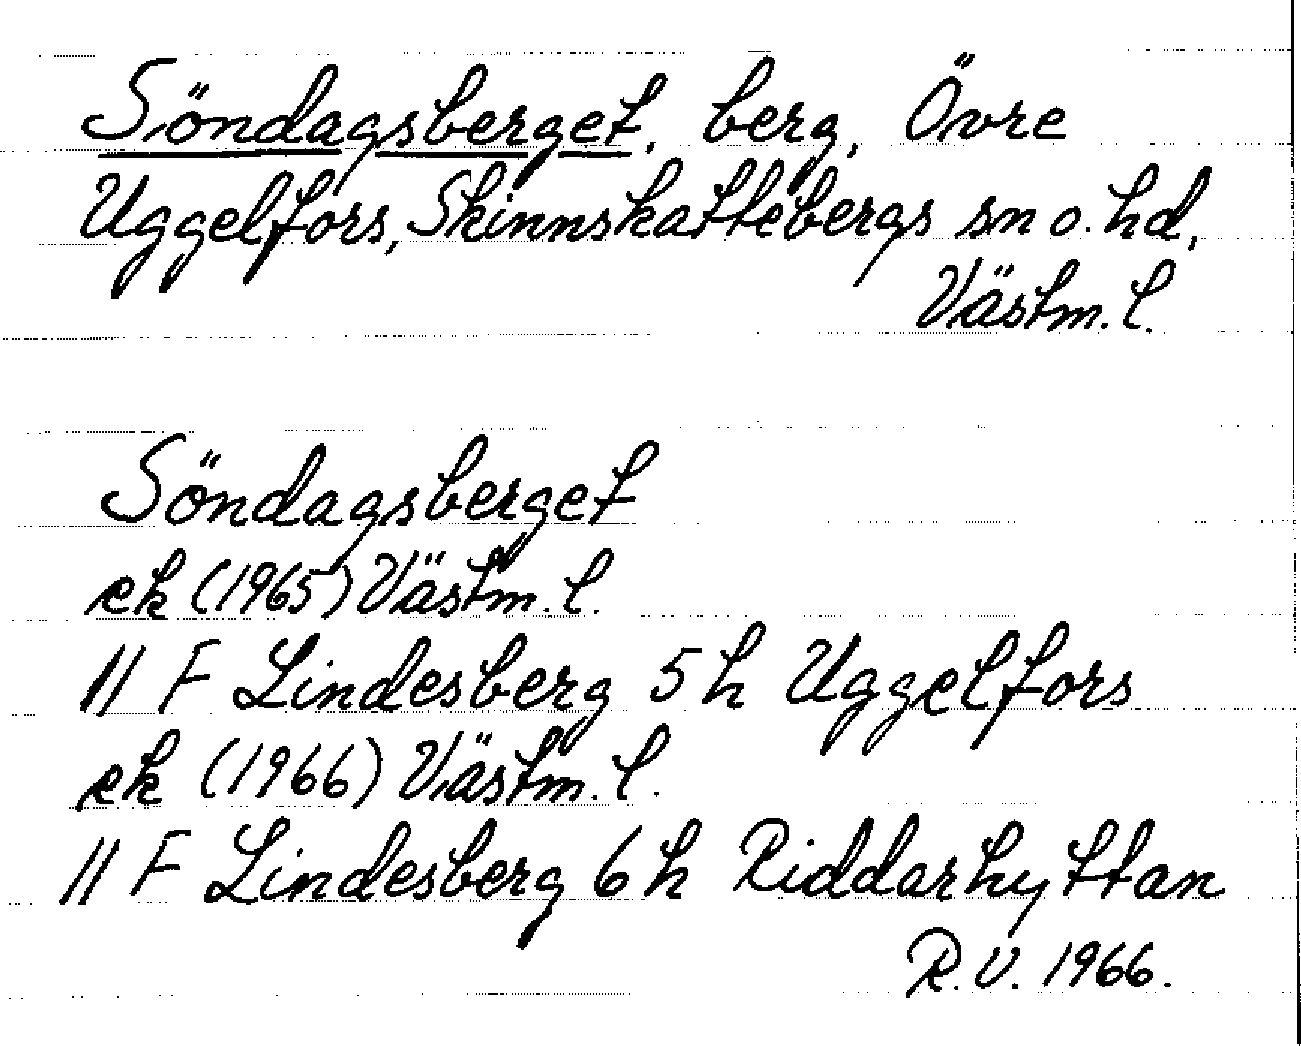 Söndagsberget, berg, Övre
Uggelfors, Skinnskattebergs sn o. hd,
Västm. l.
Söndagsberget
ek (1965) Västm. l.
11 F Lindesberg 5 h Uggelfors
ek (1966) Västm. l.
11 F Lindesberg 6 h Riddarhyttan
R.V. 1966.